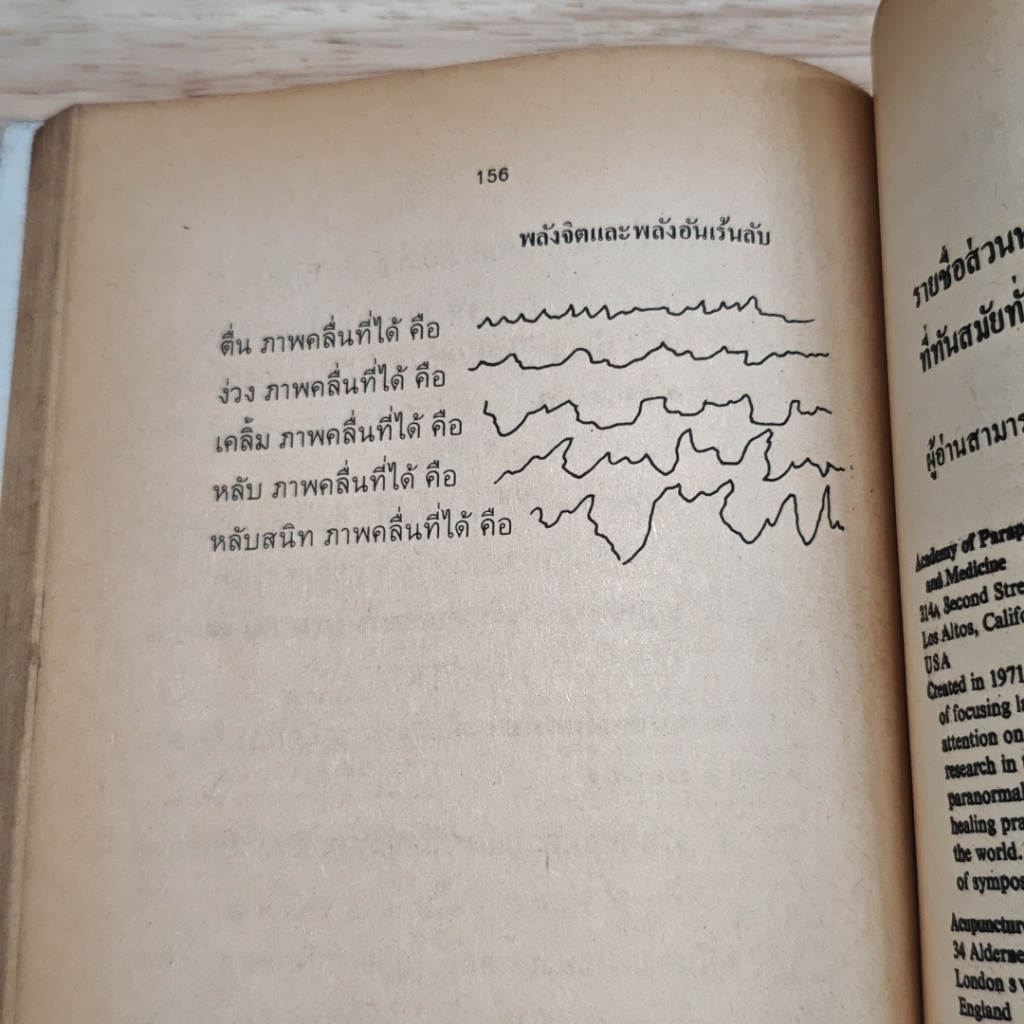 156
พลังจิตและพลังอันเร้นลับ
ตื่น ภาพคลื่นที่ได้ คือ
ง่วง ภาพคลื่นที่ได้ คือ
เคลิ้ม ภาพคลื่นที่ได้ คือ
หลับ ภาพคลื่นที่ได้ คือ
หลับสนิท ภาพคลื่นที่ได้ คือ
รายชื่อส่วน
ที่ทันสมัย
ผู้อ่าน
Academy of
and Medicine
314A Second
Los Altos,
USA
Created in 1971
of focusing
attention on
research in
paranormal
healing
the world.
of
34
London
England